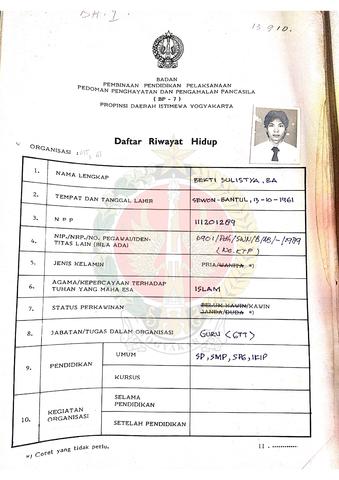 BH-1
13910.
BADAN
PEMBINAAN PENDIDIKAN PELAKSANAAN
PEDOMAN PENGHAYATAN DAN PENGAMALAN PANCASILA
( BP - 7 )
PROPINSI DAERAH ISTIMEWA YOGYAKARTA
Daftar Riwayat Hidup
ORGANISASI :
1. NAMA LENGKAP BEKTI SULISTYA, BA
2. TEMPAT DAN TANGGAL LAHIR SEWON-BANTUL, 13-10-1961
3. N P P 111201289
4. NIP./NRP./NO. PEGAWAI/IDEN-
TITAS LAIN (BILA ADA) (No. KTP)
5. JENIS KELAMIN PRIA/WANITA *)
6. AGAMA/KEPERCAYAAN TERHADAP
TUHAN YANG MAHA ESA ISLAM
7. STATUS PERKAWINAN BELUM KAWIN/KAWIN
JANDA/DUDA *)
8. JABATAN/TUGAS DALAM ORGANISASI GURU (GTT)
9. PENDIDIKAN UMUM SD, SMP, SPG, IKIP
KURSUS
10. KEGIATAN
ORGANISASI SELAMA
PENDIDIKAN
SETELAH PENDIDIKAN
*) Coret yang tidak perlu.
11 . ............